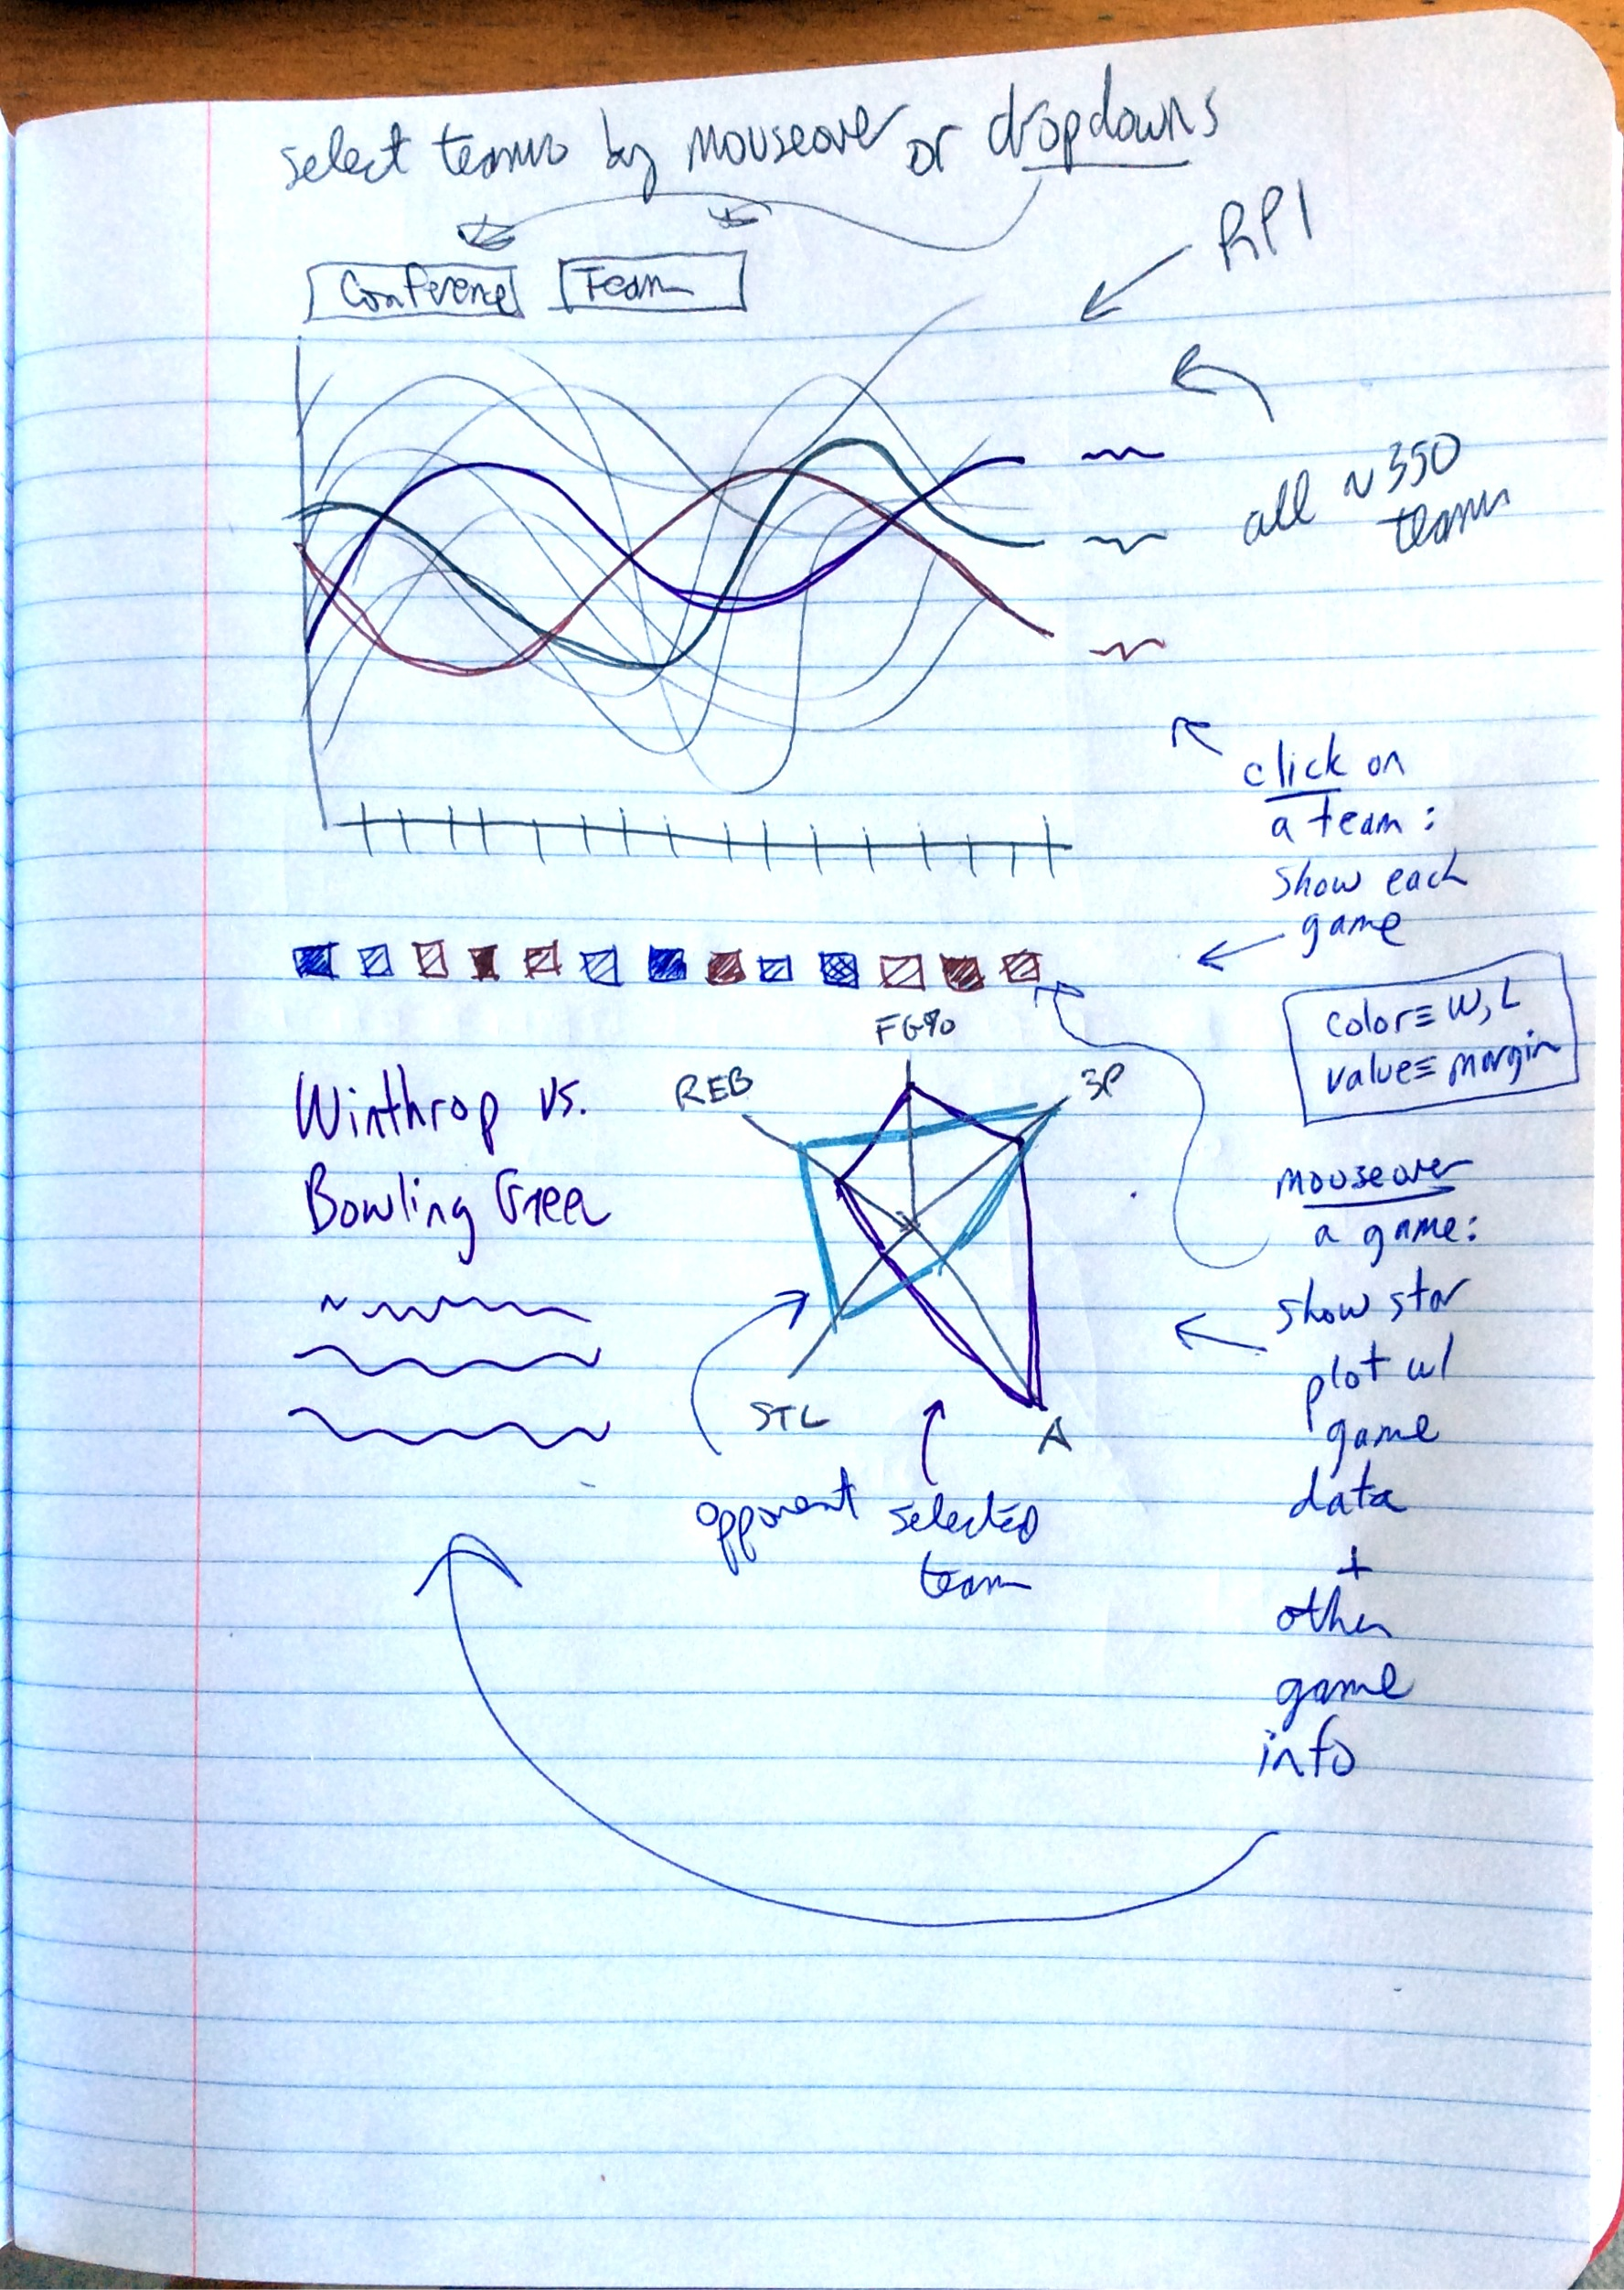 select teams by mouseover or dropdowns
RPI
Conference Team
all ~350
teams
click on
a team:
show each
game
color≡ W, L
value≡ margin
FG%
REB
3P
STL
A
Winthrop vs.
Bowling Green
mouseover
a game:
show star
plot w/
game
data
+
other
game
info
opponent
selected
team